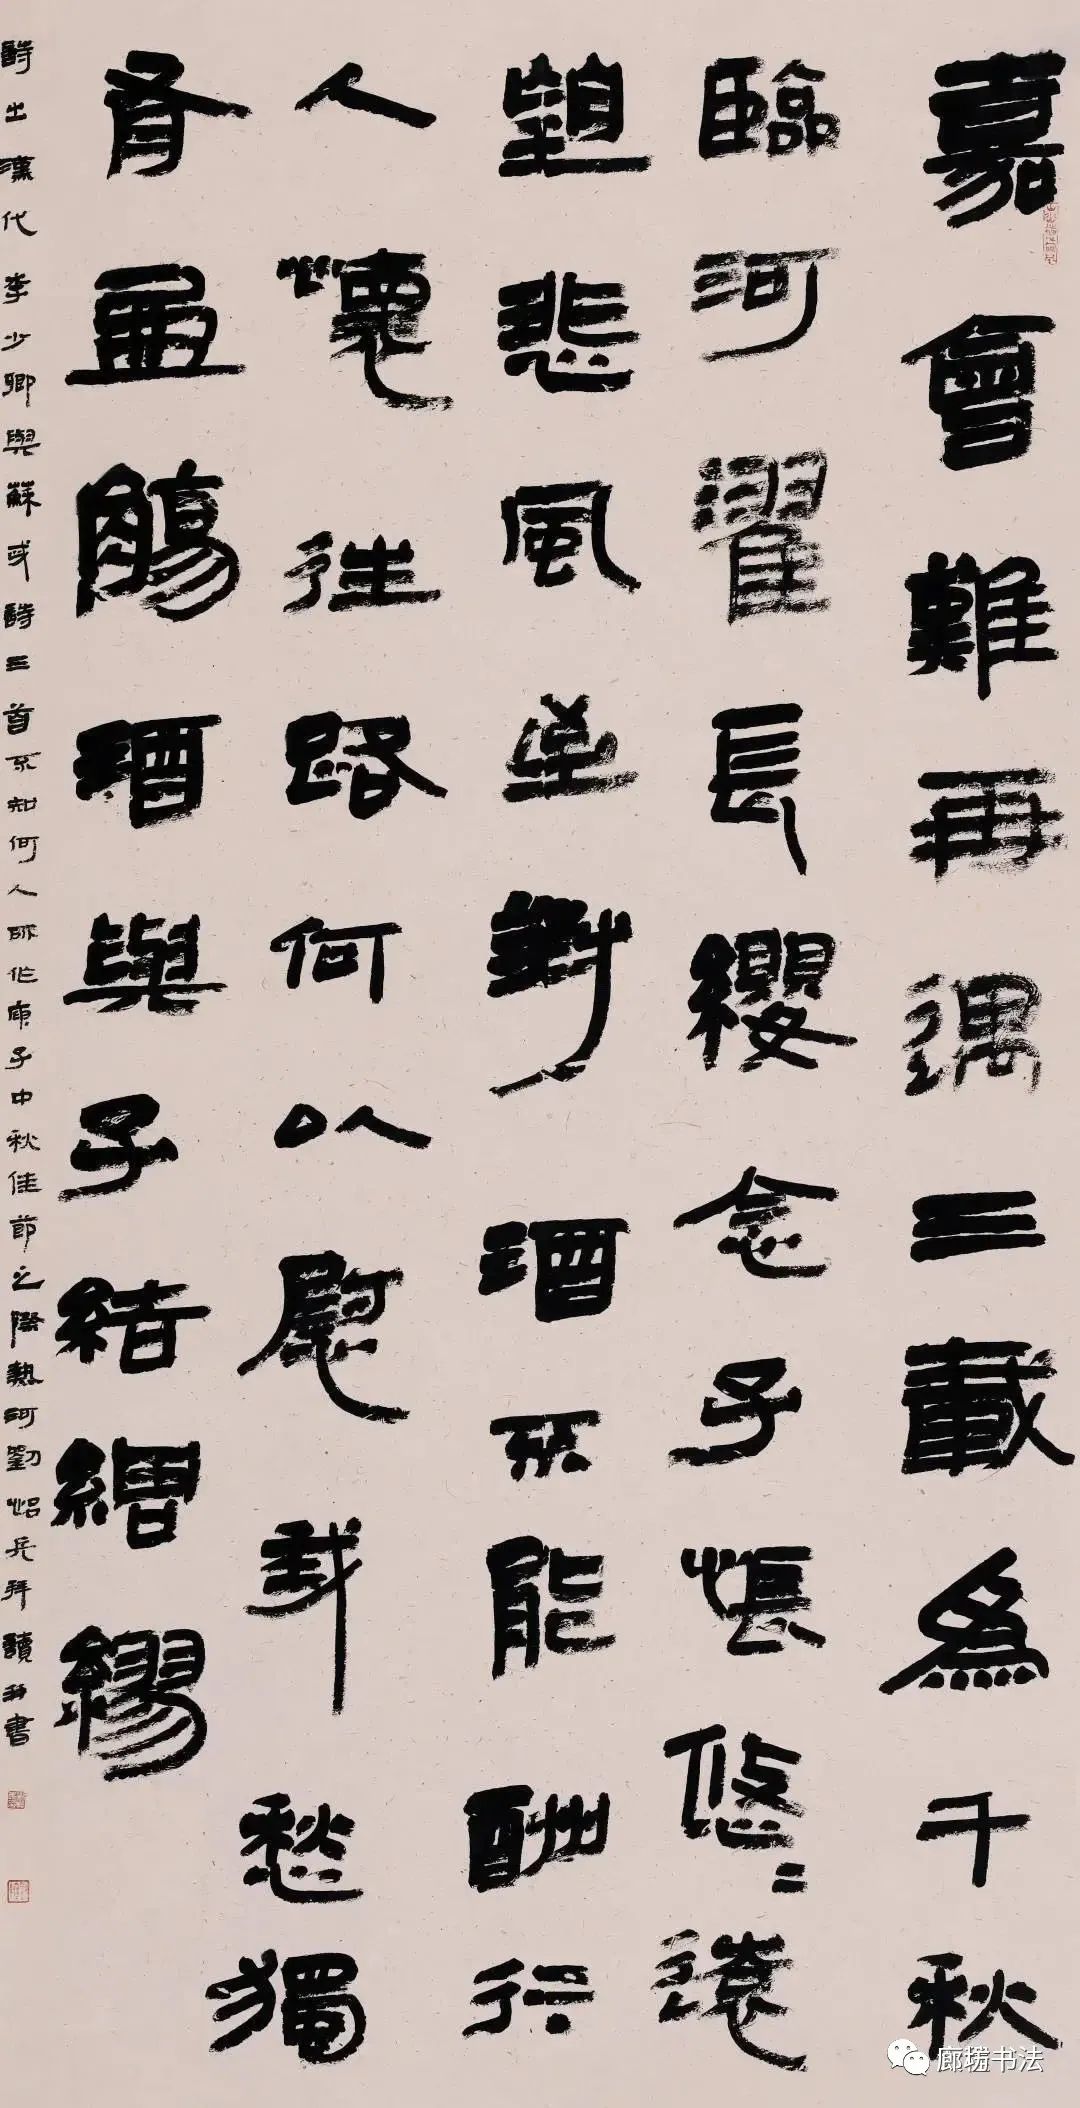 嘉會難再遇三載為千秋
臨河翟長纓念子悵悠〻遠
望悲風至對酒不能酬行
人懷往路何以慰我愁獨
有盈觴酒與子結綢繆
詩出漢代李少卿與蘇武詩三首不知何人所作庚子中秋佳節之際熱河劉兵拜讀并書
书法